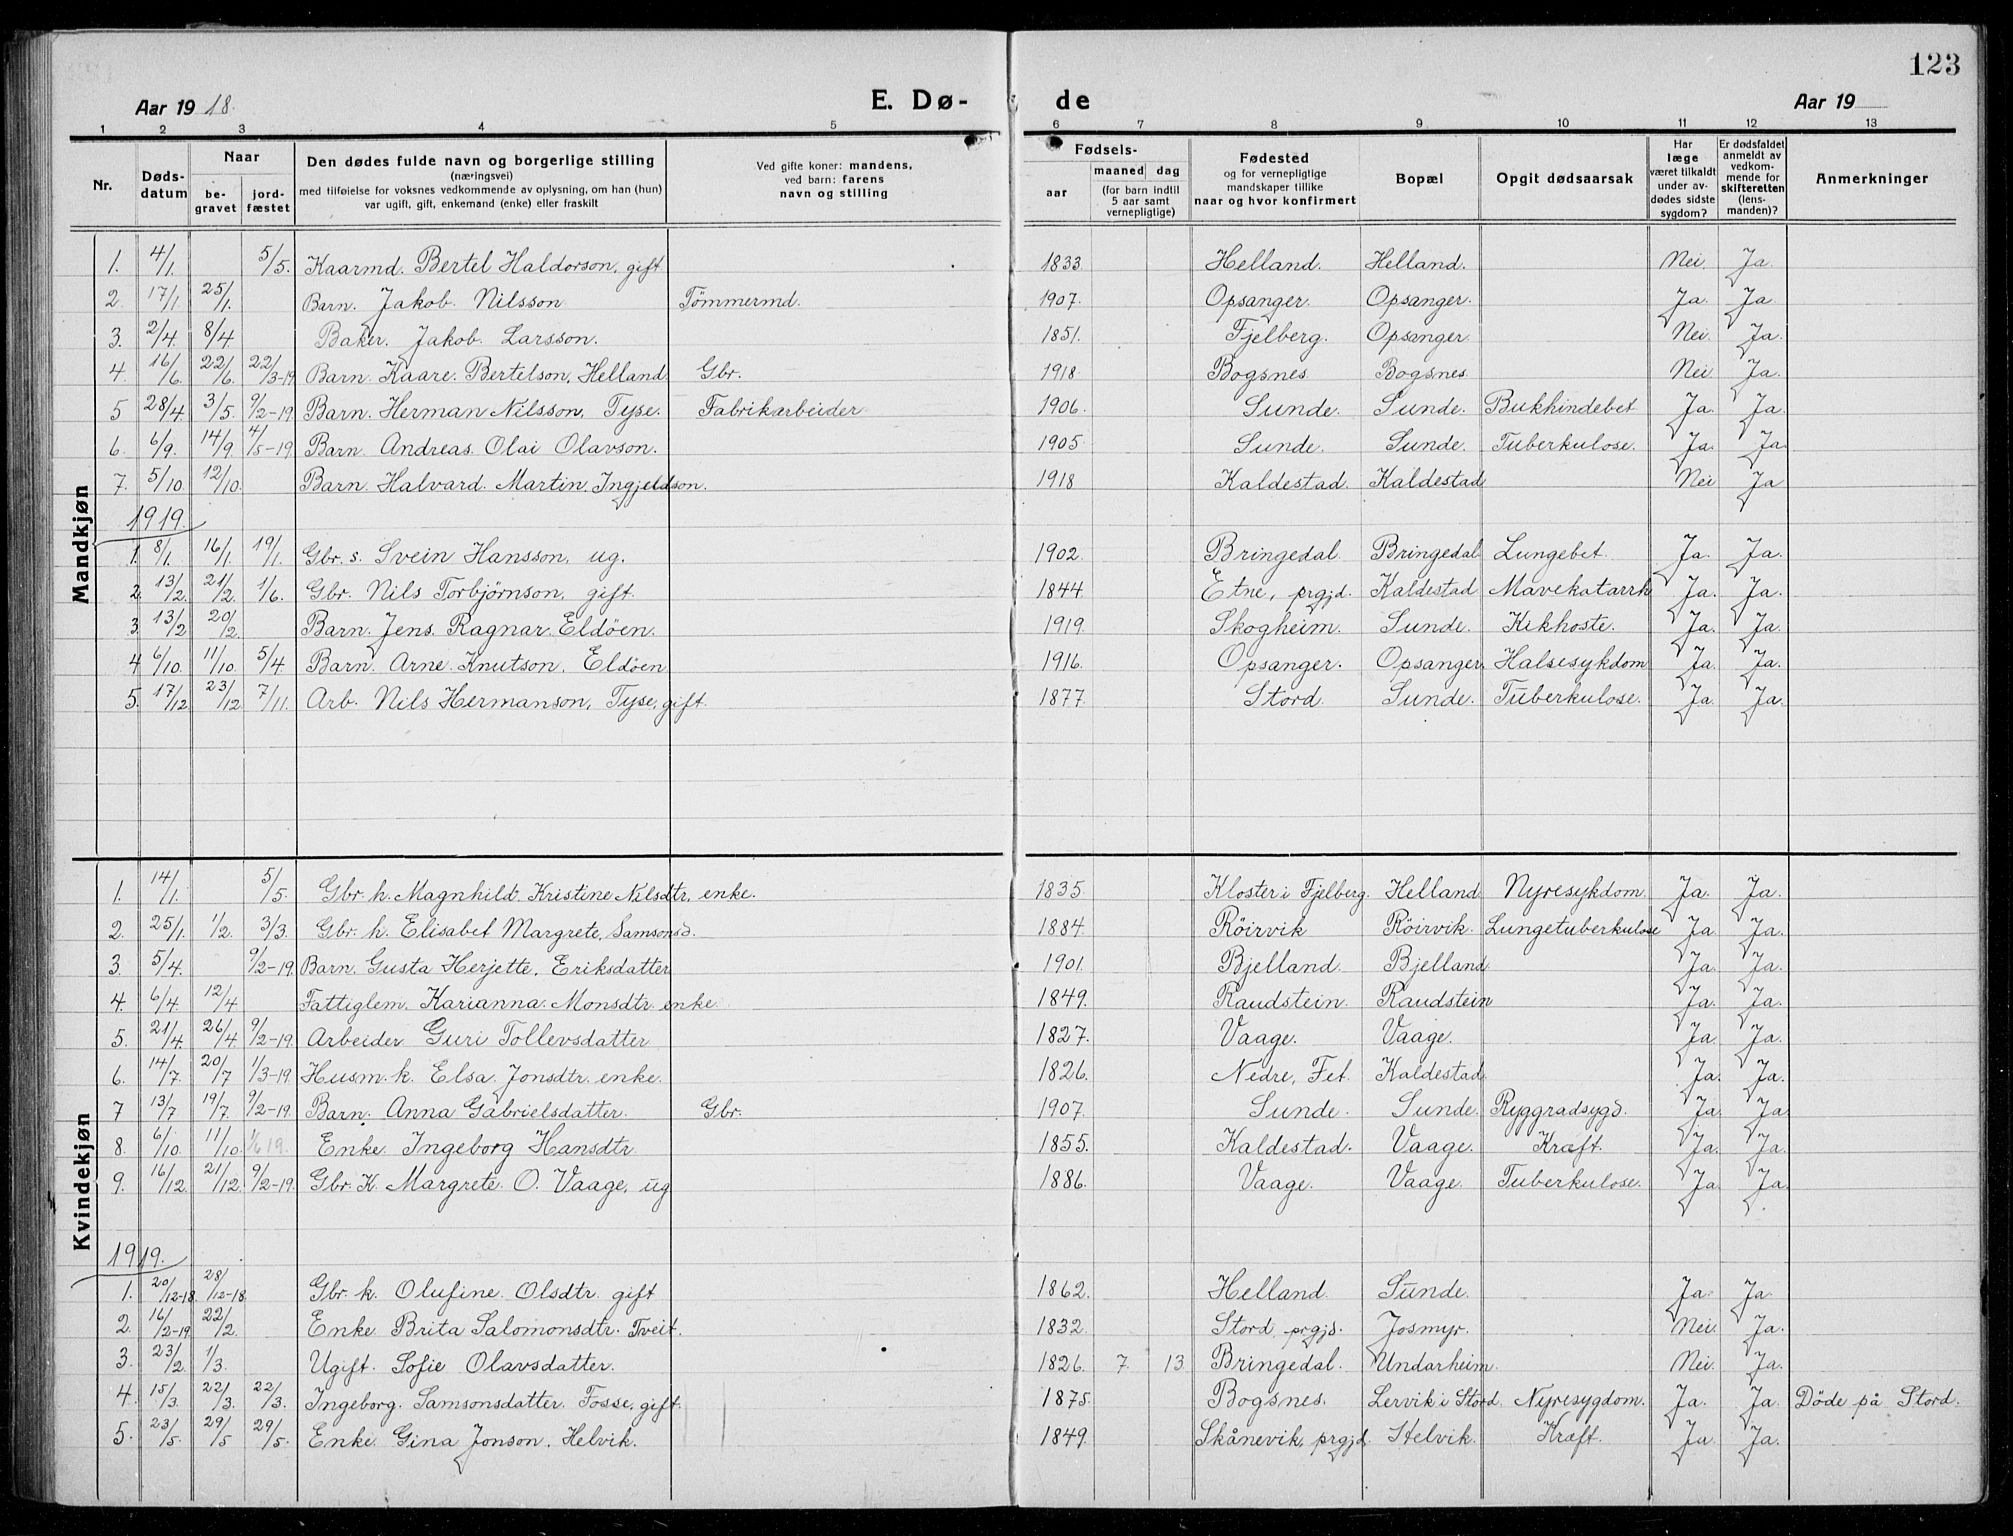 123
Aar 1918. E. Dø- de Aar 19
1 2 3 4 5 6 7 8 9 10 11 12 13
Nr. Døds-datum Naar be-gravet jord-fæstet Den dødes fulde navn og borgerlige stilling (næringsvei) med tilføielse for voksnes vedkommende av oplysning, om han (hun) var ugift, gift, enkemand (enke) eller fraskilt Ved gifte koner: mandens, ved barn: farens navn og stilling Fødsels- aar maaned dag (for barn indtil 5 aar samt vernepligtige) Fødested og for vernepligtige mandskaper tillike naar og hvor konfirmert Bopæl Opgit dødsaarsak Har læge været tilkaldt under av-dødes sidste sygdom? Er dødsfaldet anmeldt av vedkom-mende for skifteretten (lens-manden)? Anmerkninger
Mandkjøn
1. 4/1. 5/5. Kaarmd. Bertel Haldorson, gift 1833. Helland. Helland. Nei. Ja.
2. 17/1 25/1. Barn. Jakob. Nilsson. Tømmermd. 1907. Opsanger. Opsanger. Ja. Ja
3. 2/4 8/4. Baker. Jakob. Larsson. 1851. Fjelberg. Opsanger. Nei. Ja.
4. 16/6. 22/6. 22/3-19. Barn. Kaare. Bertelson, Helland. Gbr. 1918. Bogsnes. Bogsnes. Nei. Ja.
5 28/4. 3/5. 9/2-19. Barn. Herman Nilsson, Tyse. Fabrikarbeider. 1906. Sunde. Sunde. Bukhindebet. Ja. Ja.
6. 6/9. 14/9. 4/5-19. Barn. Andreas. Olai Olavson. 1905 Sunde. Sunde. Tuberkulose. Ja. Ja.
7. 5/10. 12/10. Barn. Halvard. Martin. Ingjeldson. 1918 Kaldestad. Kaldestad. Nei Ja
1919.
1. 8/1. 16/1. 19/1. Gbr. s. Svein Hansson, ug. 1902. Bringedal. Bringedal. Lungebet. Ja. Ja.
2. 13/2. 21/2. 1/6. Gbr. Nils Torbjørnson, gift. 1844. Etne, prgjd. Kaldestad Mavekatarrh Ja. Ja.
3. 13/2 20/2. Barn. Jens. Ragnar. Eldöen. 1919. Skogheim. Sunde. Kikhoste. Ja. Ja.
4 6/10. 11/10. 5/4. Barn. Arne. Knutson. Eldöen 1916. Opsanger. Opsanger. Halsesykdom Ja. Ja.
5. 17/12 23/12 7/11. Arb. Nils Hermanson, Tyse, gift. 1877. Stord. Sunde. Tuberkulose. Ja. Ja.
Kvindekjøn
1. 14/1. 5/5. Gbr. k. Magnhild. Kristine Nilsdtr, enke. 1835. Kloster i Fjelberg. Helland. Nyresykdom. Ja. Ja.
2. 25/1. 1/2. 3/3. Gbr. k. Elisabet Margrete, Samsonsd. 1884. Röirvik Röirvik. Lungetuberkulose Ja. Ja.
3. 5/4. 9/2-19. Barn. Gusta Herjette. Eriksdatter 1901. Bjelland. Bjelland Ja. Ja.
4. 6/4. 12/4 Fattiglem. Karianna. Monsdtr. enke. 1849. Raudstein. Raudstein Ja. Ja.
5. 21/4. 26/4. 9/2-19. Arbeider Guri Tollevsdatter 1827. Vaage. Vaage. Ja. Ja.
6. 14/7. 20/7 1/3-19. Husm. k. Elsa. Jonsdtr. enke. 1826. Nedre, Fet. Kaldestad. Ja. Ja.
7 13/7 19/7. 9/2-19. Barn. Anna Gabrielsdatter. Gbr. 1907. Sunde. Sunde. Ryggradsygd. Ja. Ja.
8. 6/10. 11/10. 1/6 19. Enke Ingeborg Hansdtr. 1855. Kaldestad. Vaage. Kræft. Ja. Ja.
9. 16/12. 21/12. 9/2-19. Gbr. K. Margrete. O. Vaage, ug 1886. Vaage. Vaage. Tuberkulose. Ja. Ja.
1919.
1. 20/12-18. 28/12-18. Gbr. k. Olufine. Olsdtr. gift 1862. Helland. Sunde. Ja. Ja.
2. 16/2-19. 22/2. Enke. Brita Salomonsdtr. Tveit. 1832. Stord, prgjd. Josmyr. Nei. Ja.
3. 23/2. 1/3. Ugift. Sofie Olavsdatter. 1826. 7. 13 Bringedal. Undarheim. Nei. Ja.
4. 15/3. 22/3. 22/3. Ingeborg. Samsonsdatter. Fosse, gift. 1875. Bogsnes. Lervik i Stord. Nyresygdom. Ja. Ja. Döde på Stord.
5. 23/5. 29/5 29/5. Enke. Gina Jonson. Helvik. 1849. Skånevik, prgjd. Helvik. Kræft. Ja. Ja.